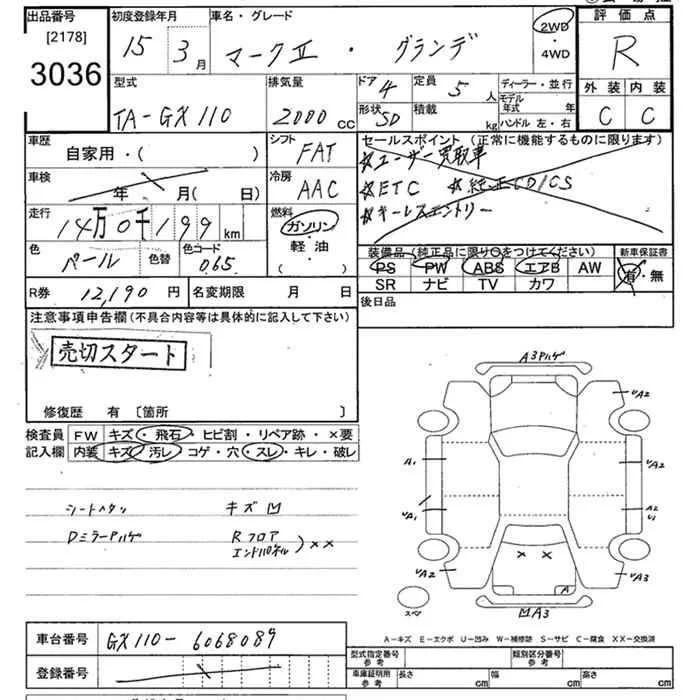 出品番号
[2178]
3036
初度登録年月
15 3月
車名・グレード
マークⅡ・グランデ
2WD
・
4WD
評価点
R
外装 内装
C C
型式
TA-GX110
排気量
2000 cc
ドア 4
形状 SD
定員 5 人
積載 kg
ディーラー・並行
モデル年式 年
ハンドル 左・右
車歴
自家用・( )
シフト FAT
車検
年 月(日)
冷房 AAC
走行
14万0千199km
燃料
ガソリン
・
軽・油
・( )
色 パール
色替
色コード 065
セールスポイント(正常に機能するものに限ります)
☆ユーザー買取車
☆ETC ☆純正CD/CS
☆キーレスエントリー
装備品(純正品に限り○をつけてください)
PS PW ABS エアB AW
SR ナビ TV カワ
新車保証書
有・無
R券 12,190円
名変期限 月 日
後日品
注意事項申告欄(不具合内容等は具体的に記入して下さい)
売切スタート
修復歴 有〔箇所 〕
検査員
記入欄
FW キズ・飛石・ヒビ割・リペア跡・×要
内装 キズ・汚レ・コゲ・穴・スレ・キレ・破レ
キズ凹
Dミラーハゲ
Rフロア
エンドパネル
××
A3ハゲ
UA2
UA2
A1
UA2
UA1
A2
U1
× ×
UA2
A
UA3
スペア
凹A3
A-キズ E-エクボ U-凹み W-補修跡 S-サビ C-腐食 XX-交換済
車台番号 GX110-6068089
登録番号
型式指定番号
参考
類別区分番号
参考
車庫証明用
参考
長さ cm
幅 cm
高さ cm